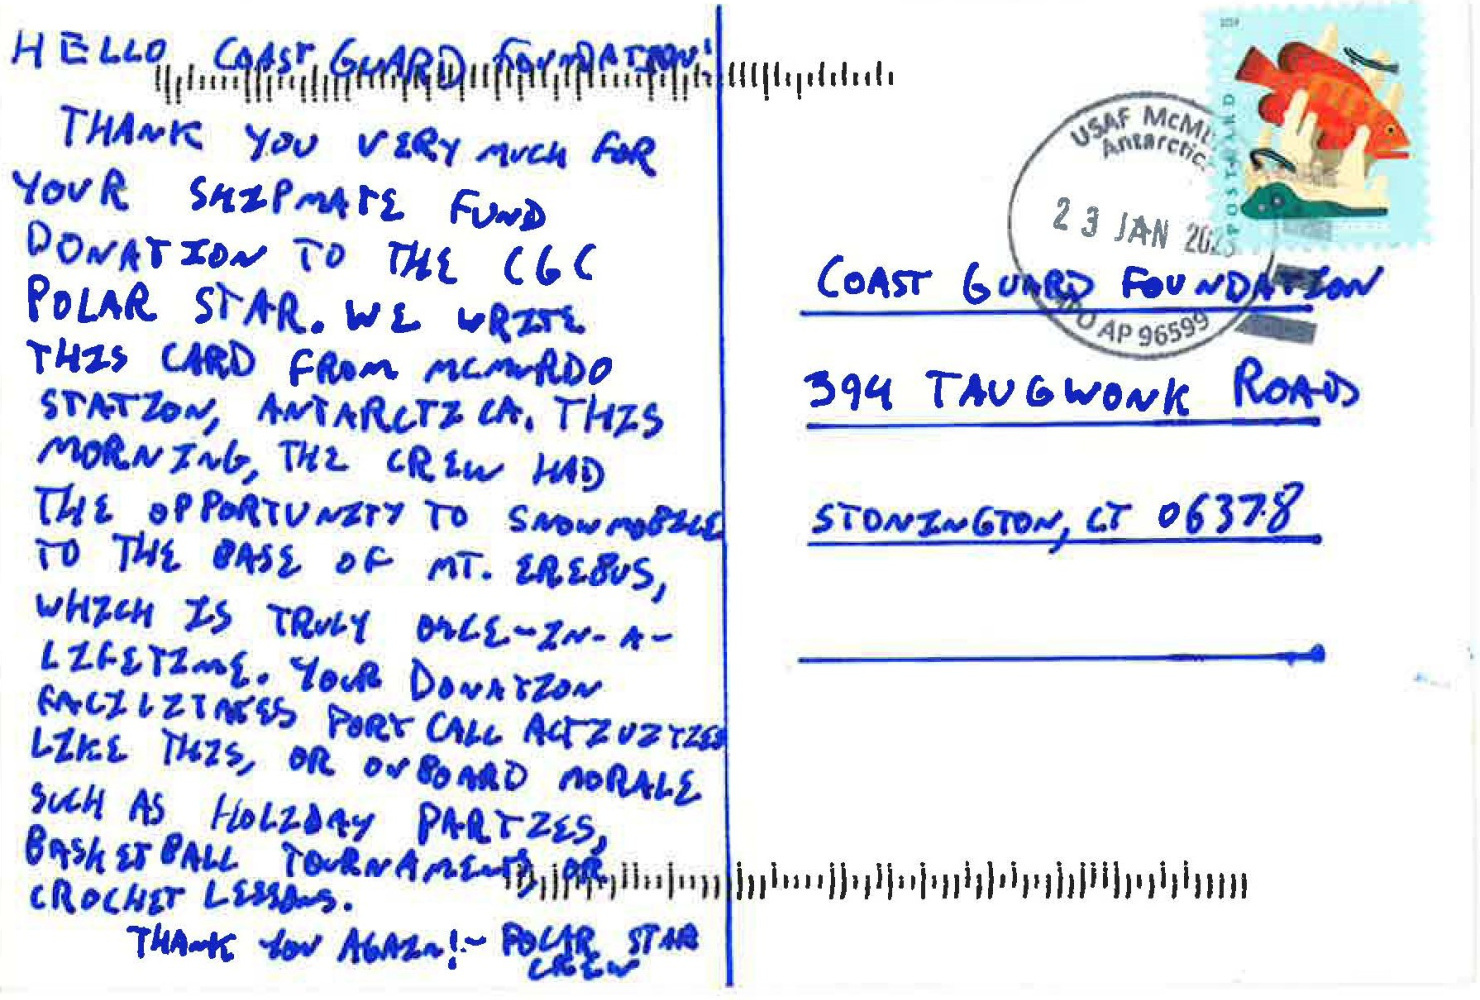 HELLO COAST GUARD FOUNDATION!
THANK YOU VERY MUCH FOR
YOUR SHIPMATE FUND
DONATION TO THE CGC
POLAR STAR. WE WRITE
THIS CARD FROM MCMURDO
STATION, ANTARCTICA. THIS
MORNING, THE CREW HAD
THE OPPORTUNITY TO SNOWMOBILE
TO THE BASE OF MT. EREBUS,
WHICH IS TRULY ONCE-IN-A-
LIFETIME. YOUR DONATION
FACILITATES PORT CALL ACTIVITIES
LIKE THIS, OR ONBOARD MORALE
SUCH AS HOLIDAY PARTIES,
BASKETBALL TOURNAMENTS, OR
CROCHET LESSONS.
THANK YOU AGAIN! - POLAR STAR
CREW
2019
POSTCARD
USAF McM
Antarctic
23 JAN 2023
APO AP 96599
COAST GUARD FOUNDATION
394 TAUGWONK ROAD
STONINGTON, CT 06378